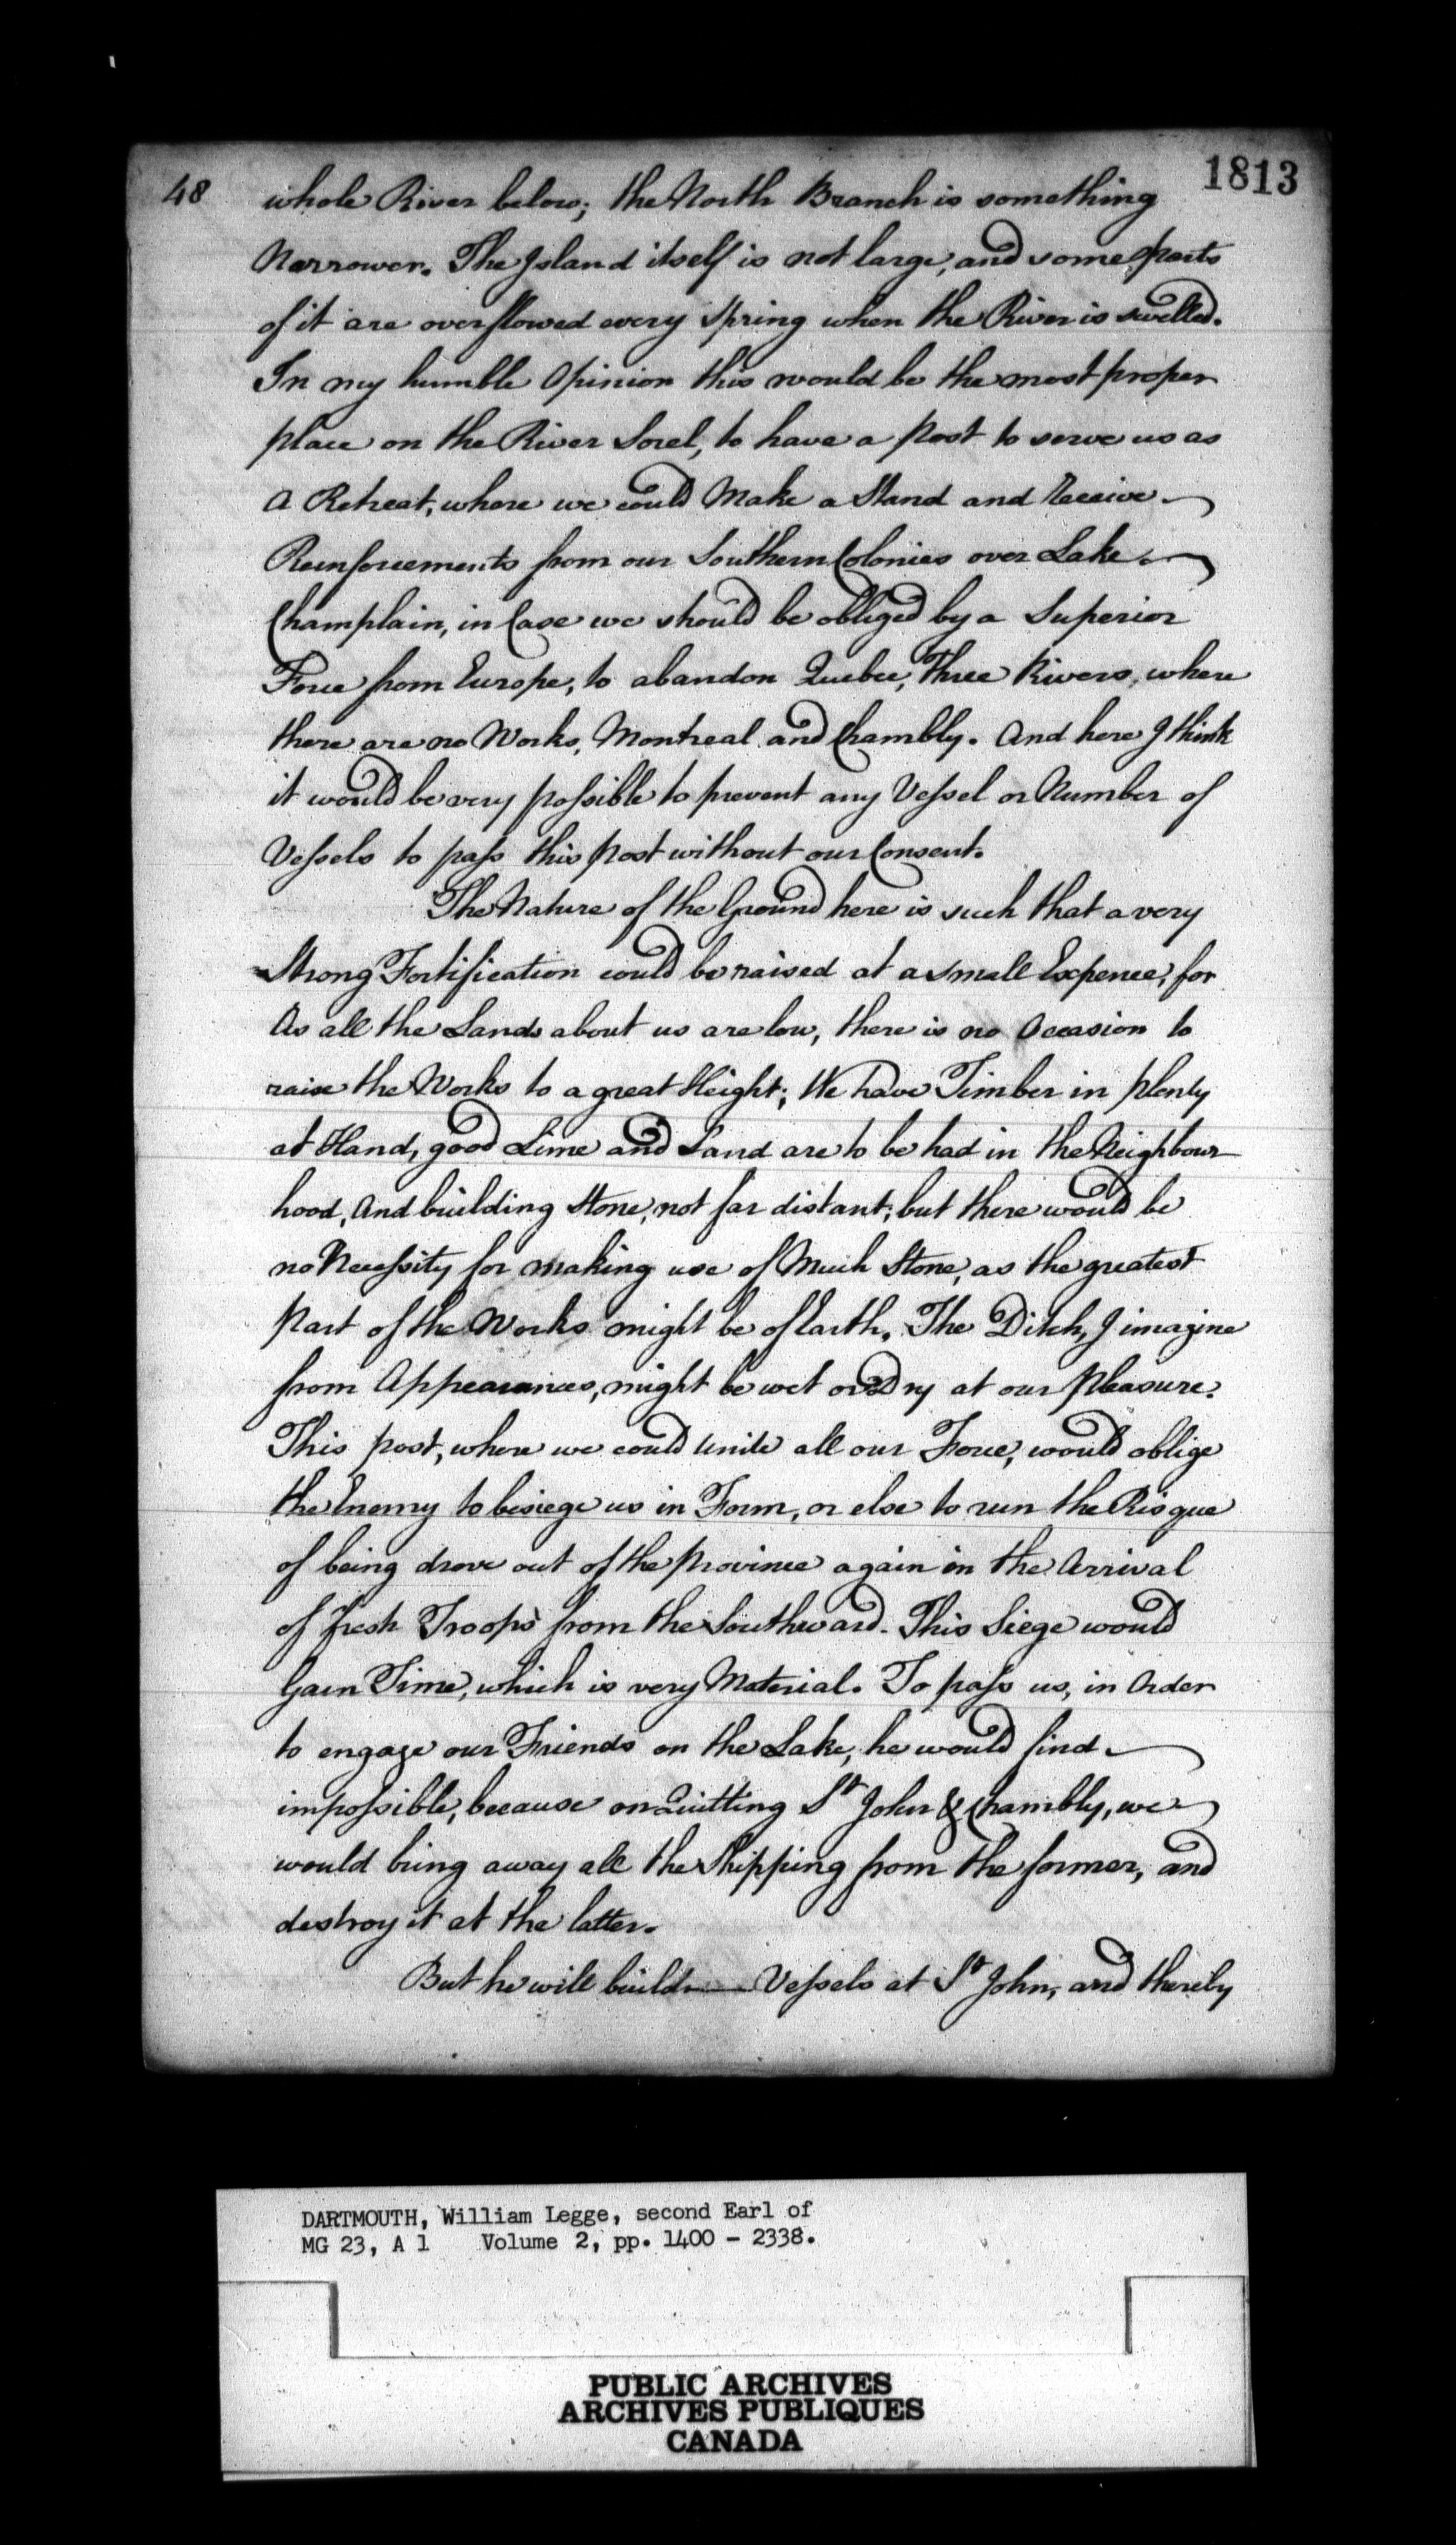 1813
48 whole River below; the North Branch is something
Narrower. The Island itself is not large, and some parts
of it are overflowed every Spring when the River is swelled.
In my humble Opinion this would be the most proper
place on the River Sorel, to have a post to serve us as
A Retreat, where we could Make a Stand and Receive
Reinforcements from our Southern Colonies over Lake
Champlain, in Case we should be obliged by a Superior
Force from Europe, to abandon Quebec, Three Rivers, where
there are no Works, Montreal and Chambly. And here I think
it would be very possible to prevent any Vessel or Number of
Vessels to pass this post without our Consent.
The Nature of the Ground here is such that a very
Strong Fortification could be raised at a small Expence, for
As all the Lands about us are low, there is no Occasion to
raise the Works to a great Height; We have Timber in plenty
at Hand, good Lime and Sand are to be had in the Neighbour
hood, And building Stone, not far distant; but there would be
no Necessity for making use of Much Stone, as the greatest
Part of the Works might be of Earth. The Ditch, I imagine
from Appearances, might be wet or dry at our Pleasure.
This post, where we could Unite all our Force, would oblige
the Enemy to besiege us in Form, or else to run the Risque
of being drove out of the province again in the Arrival
of fresh Troops from the Southward. This Siege would
Gain Time, which is very Material. To pass us, in Order
to engage our Friends on the Lake, he would find
impossible, because on Quitting St John & Chambly, we
would bring away all the Shipping from the former, and
destroy it at the latter.
But he will build Vessels at St John, and thereby
DARTMOUTH, William Legge, second Earl of
MG 23, A 1 Volume 2, pp. 1400 - 2338.
PUBLIC ARCHIVES
ARCHIVES PUBLIQUES
CANADA